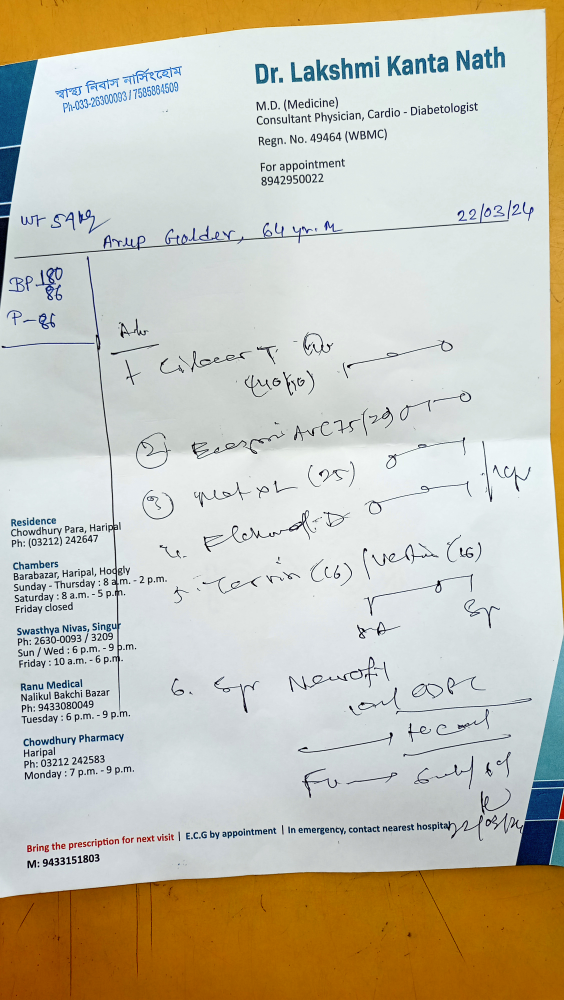 স্বাস্থ্য নিবাস নার্সিংহোম
Ph-033-26300093 / 7585864509
Dr. Lakshmi Kanta Nath
M.D. (Medicine)
Consultant Physician, Cardio - Diabetologist
Regn. No. 49464 (WBMC)
For appointment
8942950022
Wt 54 kg
Arup Golder, 64 yr. M
22/03/24
BP 180/86
P-86
Adv
Cilacar T
(40/10)
2
75/20
3
Met XL (25)
4.
5. (16) / Vertin (16)
6. Syr
Residence
Chowdhury Para, Haripal
Ph: (03212) 242647
Chambers
Barabazar, Haripal, Hoogly
Sunday - Thursday : 8 a.m. - 2 p.m.
Saturday : 8 a.m. - 5 p.m.
Friday closed
Swasthya Nivas, Singur
Ph: 2630-0093 / 3209
Sun / Wed : 6 p.m. - 9 p.m.
Friday : 10 a.m. - 6 p.m.
Ranu Medical
Nalikul Bakchi Bazar
Ph: 9433080049
Tuesday : 6 p.m. - 9 p.m.
Chowdhury Pharmacy
Haripal
Ph: 03212 242583
Monday : 7 p.m. - 9 p.m.
22/03/24
Bring the prescription for next visit | E.C.G by appointment | In emergency, contact nearest hospital
M: 9433151803